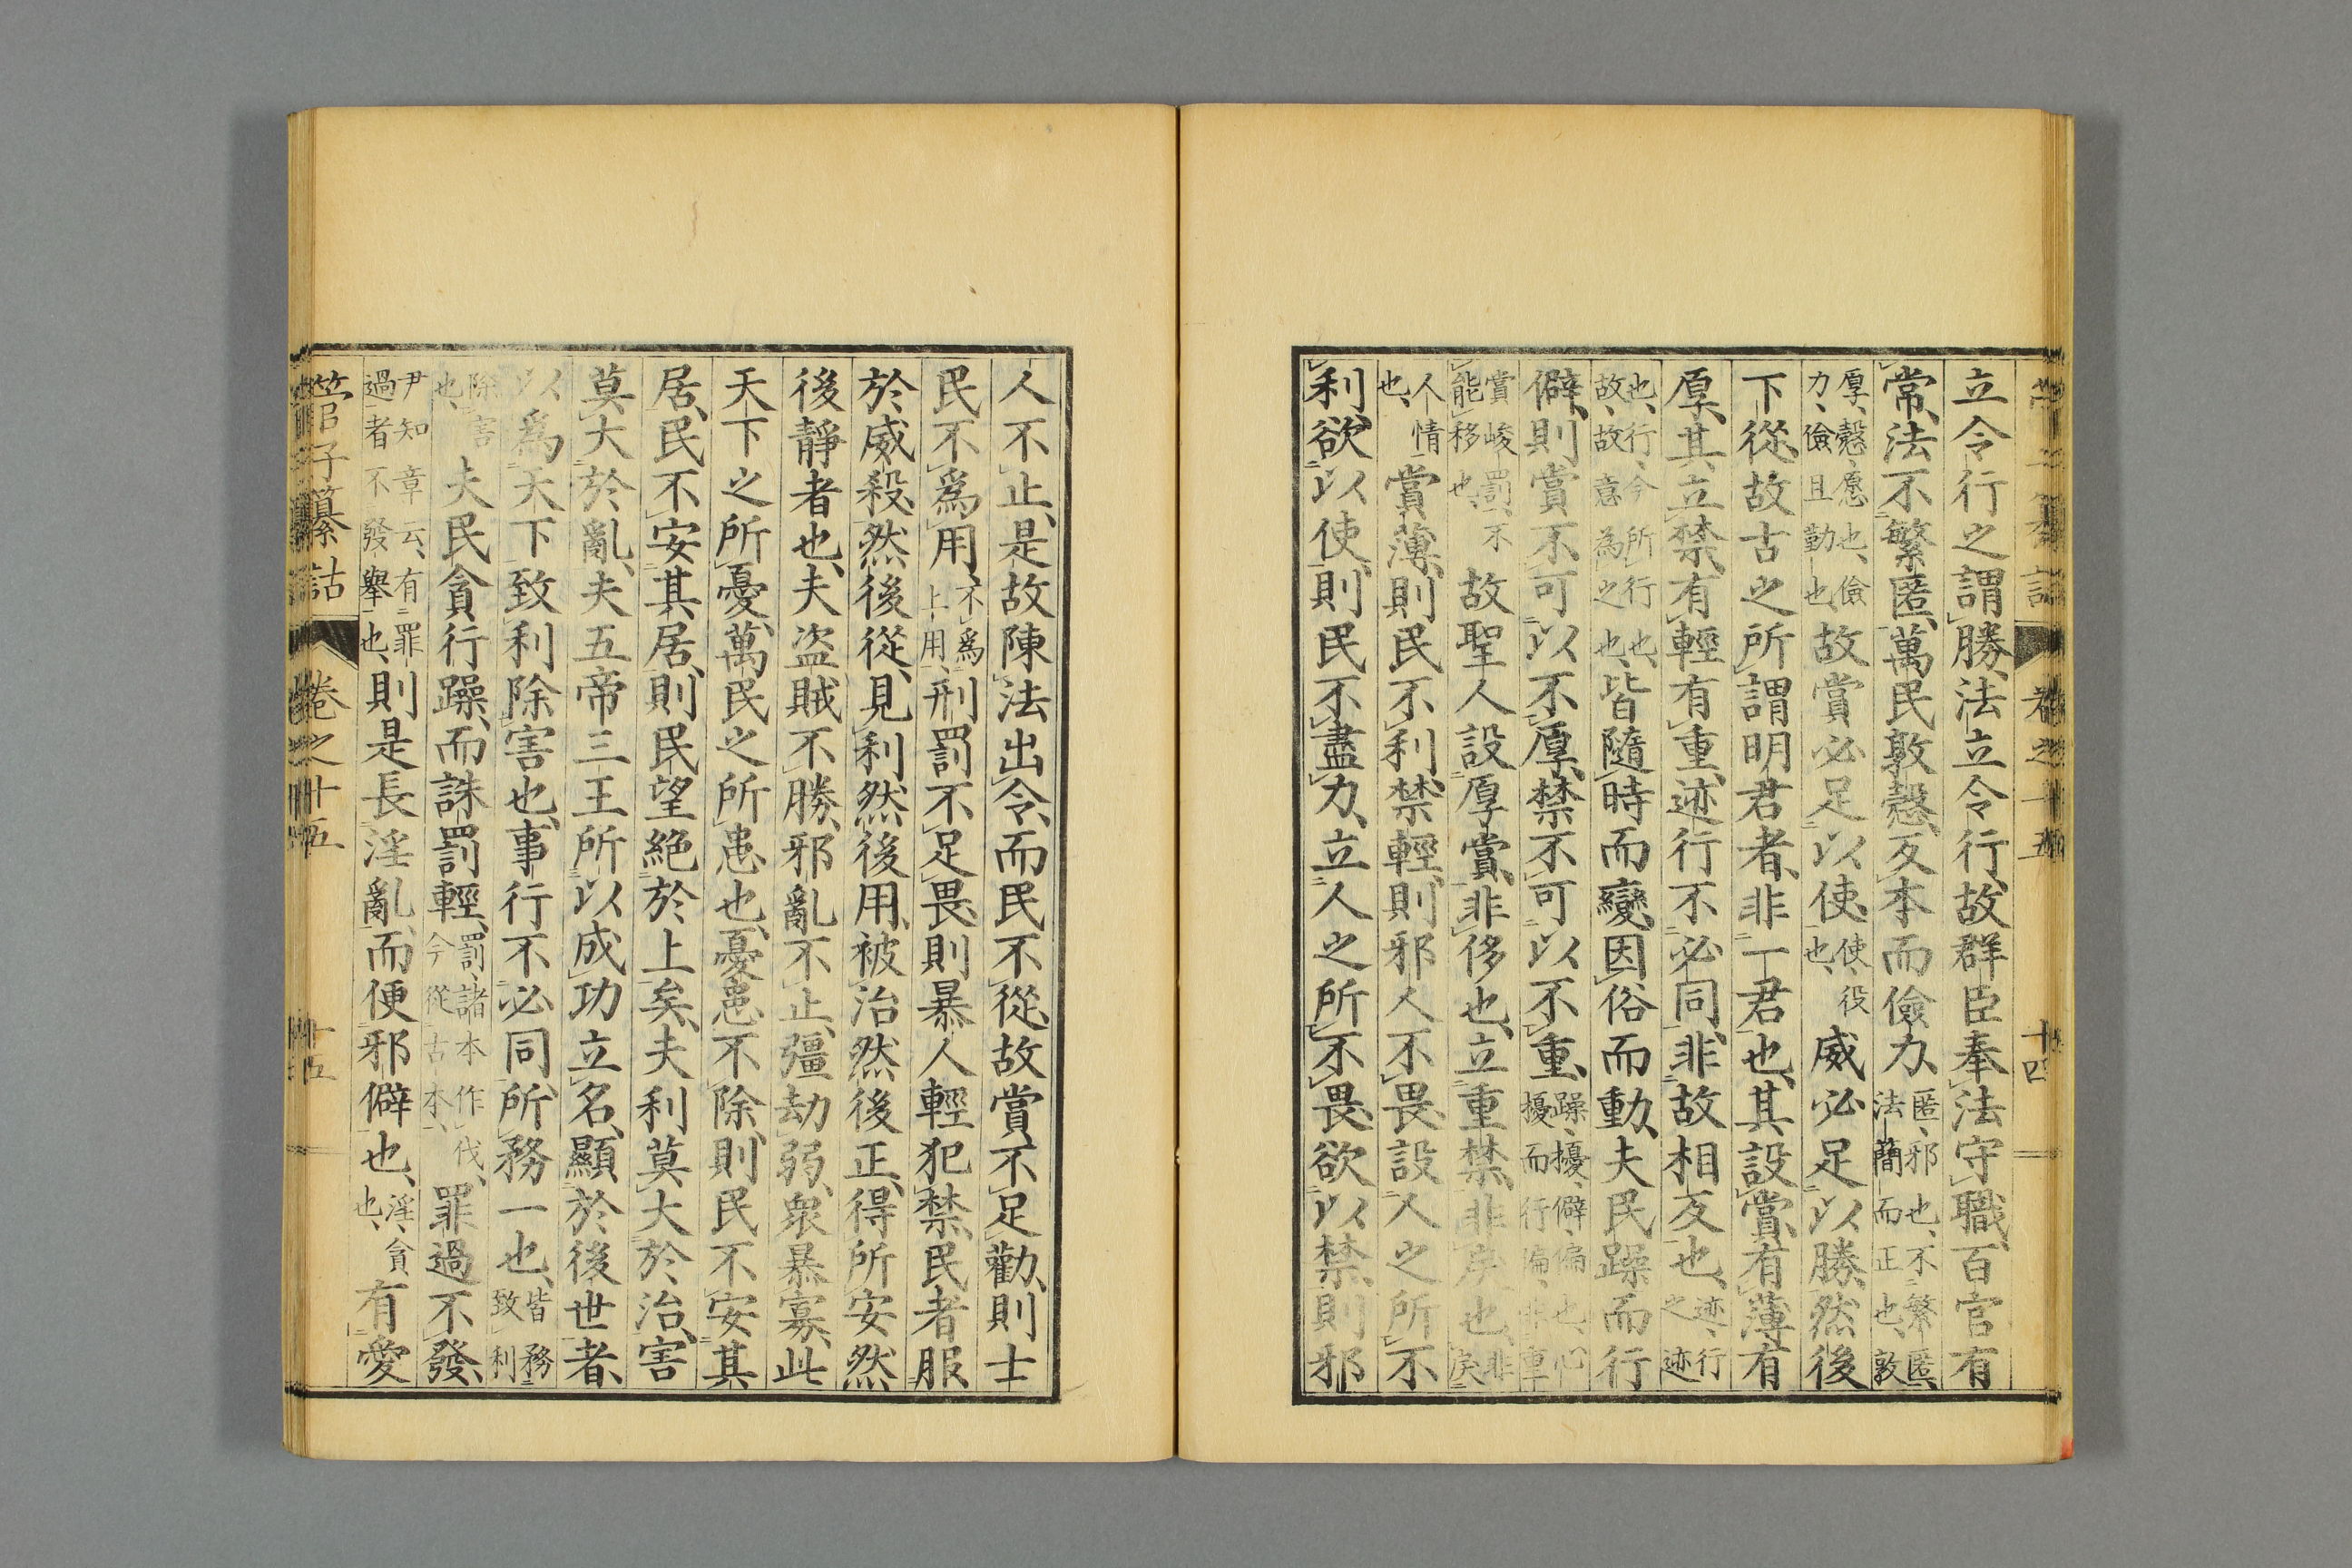 立令行之謂勝、法立令行、故群臣奉法守職、百官有
常、法不繁匿、萬民敦慤、反本而儉力、匿、邪也、不繁匿、法簡而正也、敦
厚、慤、愿也、儉力、儉且勤也、故賞必足以使、使、役也、威必足以勝、然後
下從、故古之所謂明君者、非一君也、其設賞、有薄有
厚、其立禁、有輕有重、迹行不必同、非故相反也、迹、行之迹
也、行、今所行也、故、故意為之也、皆隨時而變、因俗而動、夫民躁而行
僻、則賞不可以不厚、禁不可以不重、躁、擾、僻、偏也、心擾而行偏、非重
賞峻罰、不能移也、故聖人設厚賞、非侈也、立重禁、非戾也、非戾
人情也、賞薄、則民不利、禁輕、則邪人不畏、設人之所不
利、欲以使、則民不盡力、立人之所不畏、欲以禁、則邪
卷之十五
十四
人不止、是故陳法出令、而民不從、故賞不足勸、則士
民不為用、不為上用、刑罰不足畏、則暴人輕犯禁、民者服
於威殺、然後從、見利然後用、被治然後正、得所安然
後靜者也、夫盜賊不勝、邪亂不止、彊劫弱、衆暴寡、此
天下之所憂、萬民之所患也、憂患不除、則民不安其
居、民不安其居、則民望絕於上矣、夫利莫大於治、害
莫大於亂、夫五帝三王所以成功立名、顯於後世者、
以爲天下致利除害也、事行不必同、所務一也、皆務致利
除害也、夫民貪行躁、而誅罰輕、罰、諸本作伐、今從古本、罪過不發、
尹知章云、有罪過者不發舉也、則是長淫亂、而便邪僻也、淫、貪也、有愛
管子纂詁 卷之十五 十五